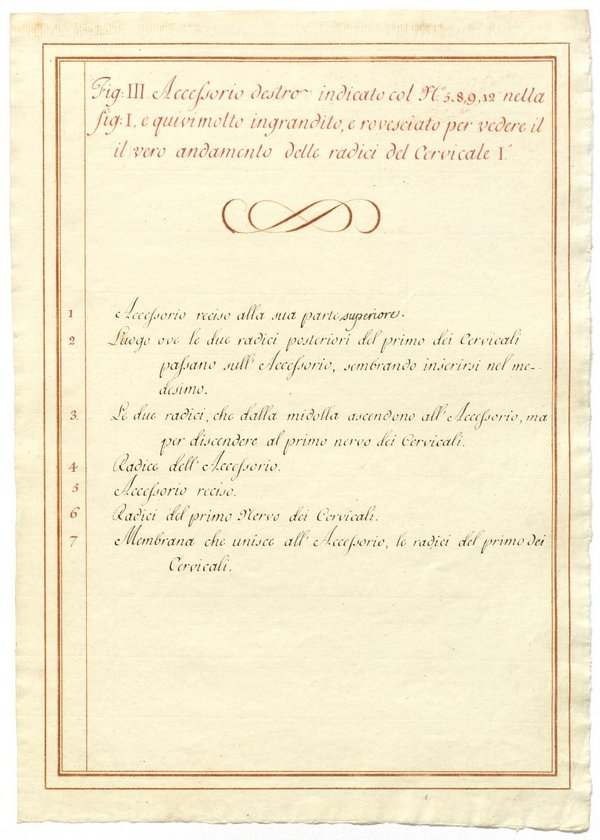 Fig: III. Accessorio destro indicato col N.º 5, 8, 9, 12 nella
fig: I, e quivi molto ingrandito, e rovesciato per vedere il
il vero andamento delle radici del Cervicale I.º
1 Accessorio reciso alla sua parte superiore.
2 Luogo ove le due radici posteriori del primo dei Cervicali
passano sull' Accessorio, sembrando inserirsi nel me-
desimo.
3. Le due radici, che dalla midolla ascendono all' Accessorio, ma
per discendere al primo nervo dei Cervicali.
4 Radice dell' Accessorio.
5 Accessorio reciso.
6 Radici del primo Nervo dei Cervicali.
7 Membrana che unisce all' Accessorio, le radici del primo dei
Cervicali.